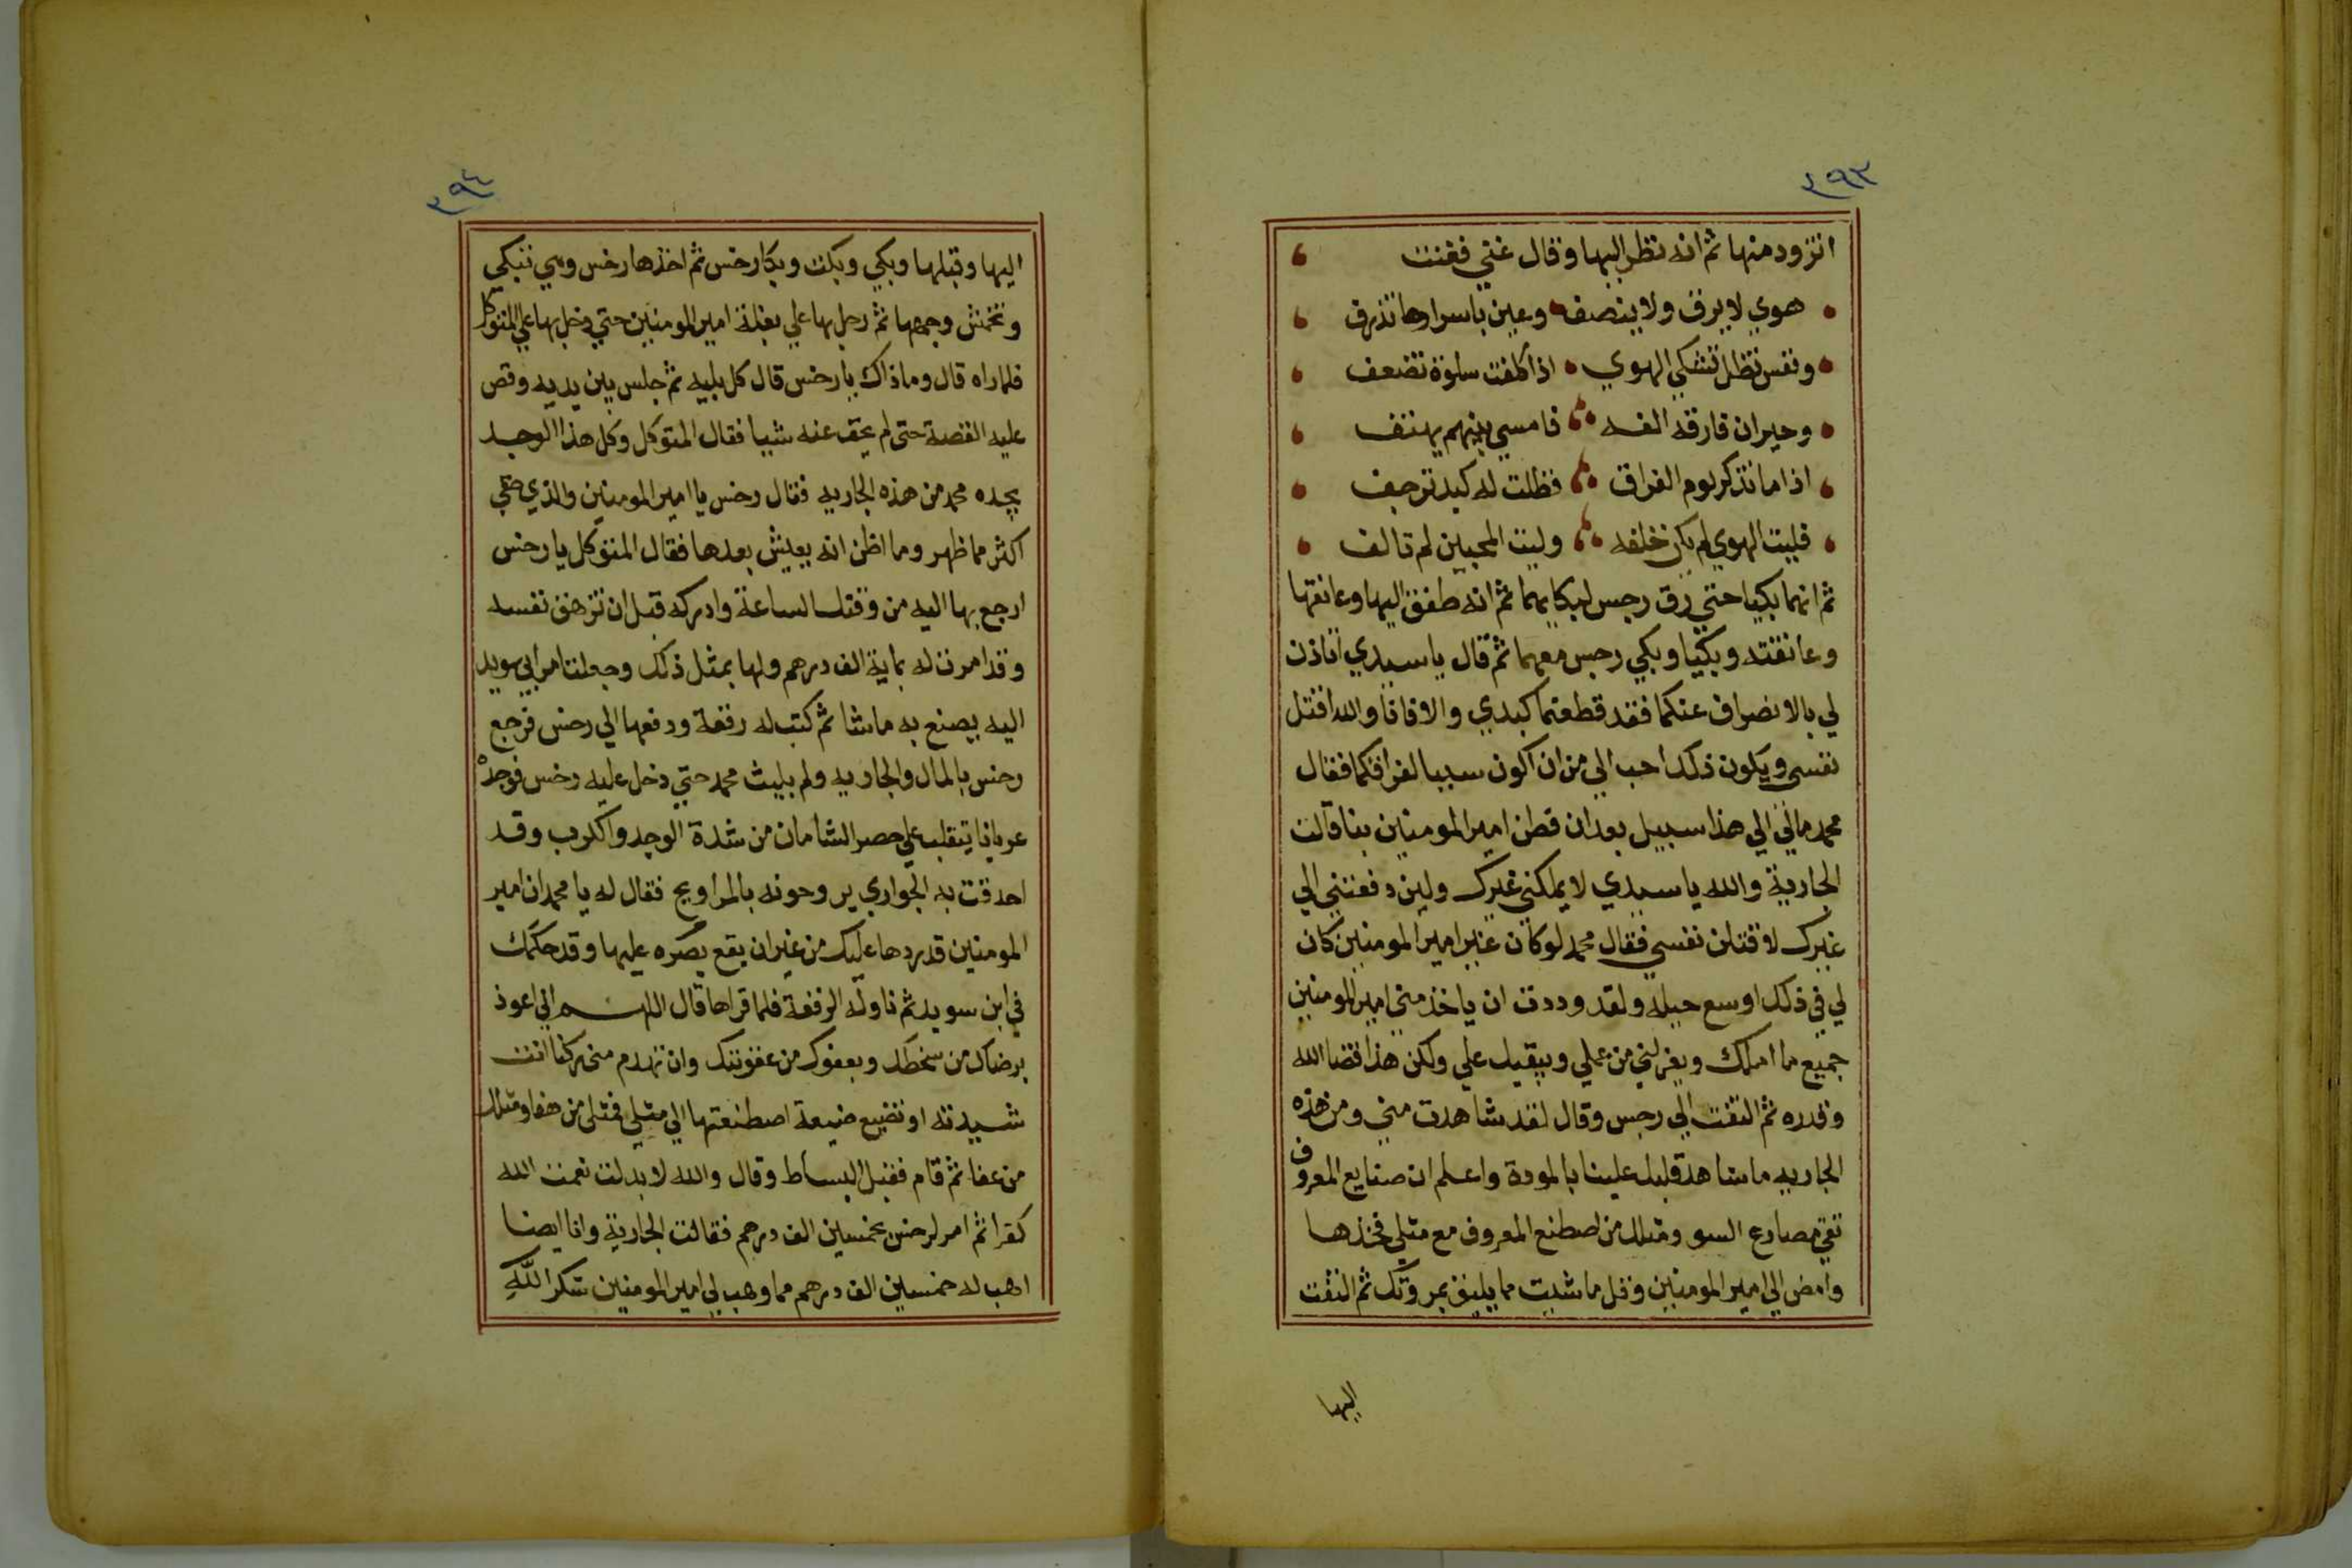 ٢٩٣
اتزود منها ثم انه نظر اليها وقال غني فغنت
هوي لا يرق ولا ينصف وعين باسرارها تذرف
ونفس تظل تشكي الهوي اذا كلفت سلوة تضعف
وحيران فارقه الفه فامسي بينهم يهتف
اذا ما تذكر يوم الفراق فظلت له كبد ترجف
فليت الهوي لم يكن خلفه وليت المحبين لم تالف
ثم انهما بكيا حتي رق رجس لبكايهما ثم انه طفق اليها وعانقها
وعانقته وبكيا وبكي رجس معهما ثم قال يا سيدي اتاذن
لي بالانصراف عنكما فقد قطعتما كبدي والا فانا والله اقتل
نفسي ويكون ذلك احب الي من ان اكون سببا لفراقكما فقال
محمد مالي الي هذا سبيل بعد ان فطن امير المومنين بنا قالت
الجارية والله يا سيدي لا يملكني غيرك ولين دفعتني الي
غيرك لاقتلن نفسي فقال محمد لو كان غير امير المومنين كان
لي في ذلك اوسع حيله ولقد وددت ان ياخذ مني امير المومنين
جميع ما املك ويعزلني من عملي ويبقيك علي ولكن هذا قضا الله
وقدره ثم التفت الي رجس وقال لقد شاهدت مني ومن هذه
الجاريه ما شاهد قلبك علينا بالمودة واعلم ان صنايع المعروف
تقي مصارع السو ومثلك من اصطنع المعروف مع مثلي فخذها
وامض الي امير المومنين وقل ما شيت مما يليق بمروتك ثم التفت
اليها
٢٩٤
اليها وقبلها وبكي وبكت وبكا رخس ثم اخذها رخس وهي تبكي
وتخمش وجهها ثم رحل بها علي بغلة امير المومنين حتي دخل بها علي المتوكل
فلما راه قال وما ذاك يا رخس قال كل بليه ثم جلس بين يديه وقص
عليه القصة حتى لم يخف عنه شيا فقال المتوكل وكل هذا الوجد
يجده محمد من هذه الجاريه فقال رخس يا امير المومنين والذي خفي
اكثر مما ظهر وما اظن انه يعيش بعدها فقال المتوكل يا رخس
ارجع بها اليه من وقتك الساعة وادركه قبل ان تزهق نفسه
وقد امرت له بماية الف درهم ولها بمثل ذلك وجعلت امر ابي سويد
اليه يصنع به ما شا ثم كتب له رقعة ودفعها الي رخس فرجع
رخس بالمال والجاريه ولم يلبث محمد حتي دخل عليه رخس فوجده
عريانا يتقلب علي حصر الشامان من شدة الوجد والكرب وقد
احدقت به الجواري يروحونه بالمراويح فقال له يا محمد ان امير
المومنين قد ردها عليك من غير ان يقع بصره عليها وقد حكمك
في ابن سويد ثم ناوله الرقعة فلما قراها قال اللهم اني اعوذ
برضاك من سخطك وبعفوك من عقوبتك وان تهدم مني ركنا انت
شيدته او تضيع ضيعة اصطنعتها الي مثلي فمثلي من هفا ومثلك
من عفا ثم قام فقبل البساط وقال والله لا بدلت نعمت الله
كفرا ثم امر لرخس بخمسين الف درهم فقالت الجارية وانا ايضا
اهب له خمسين الف درهم مما وهب لي امير المومنين شكرا لله